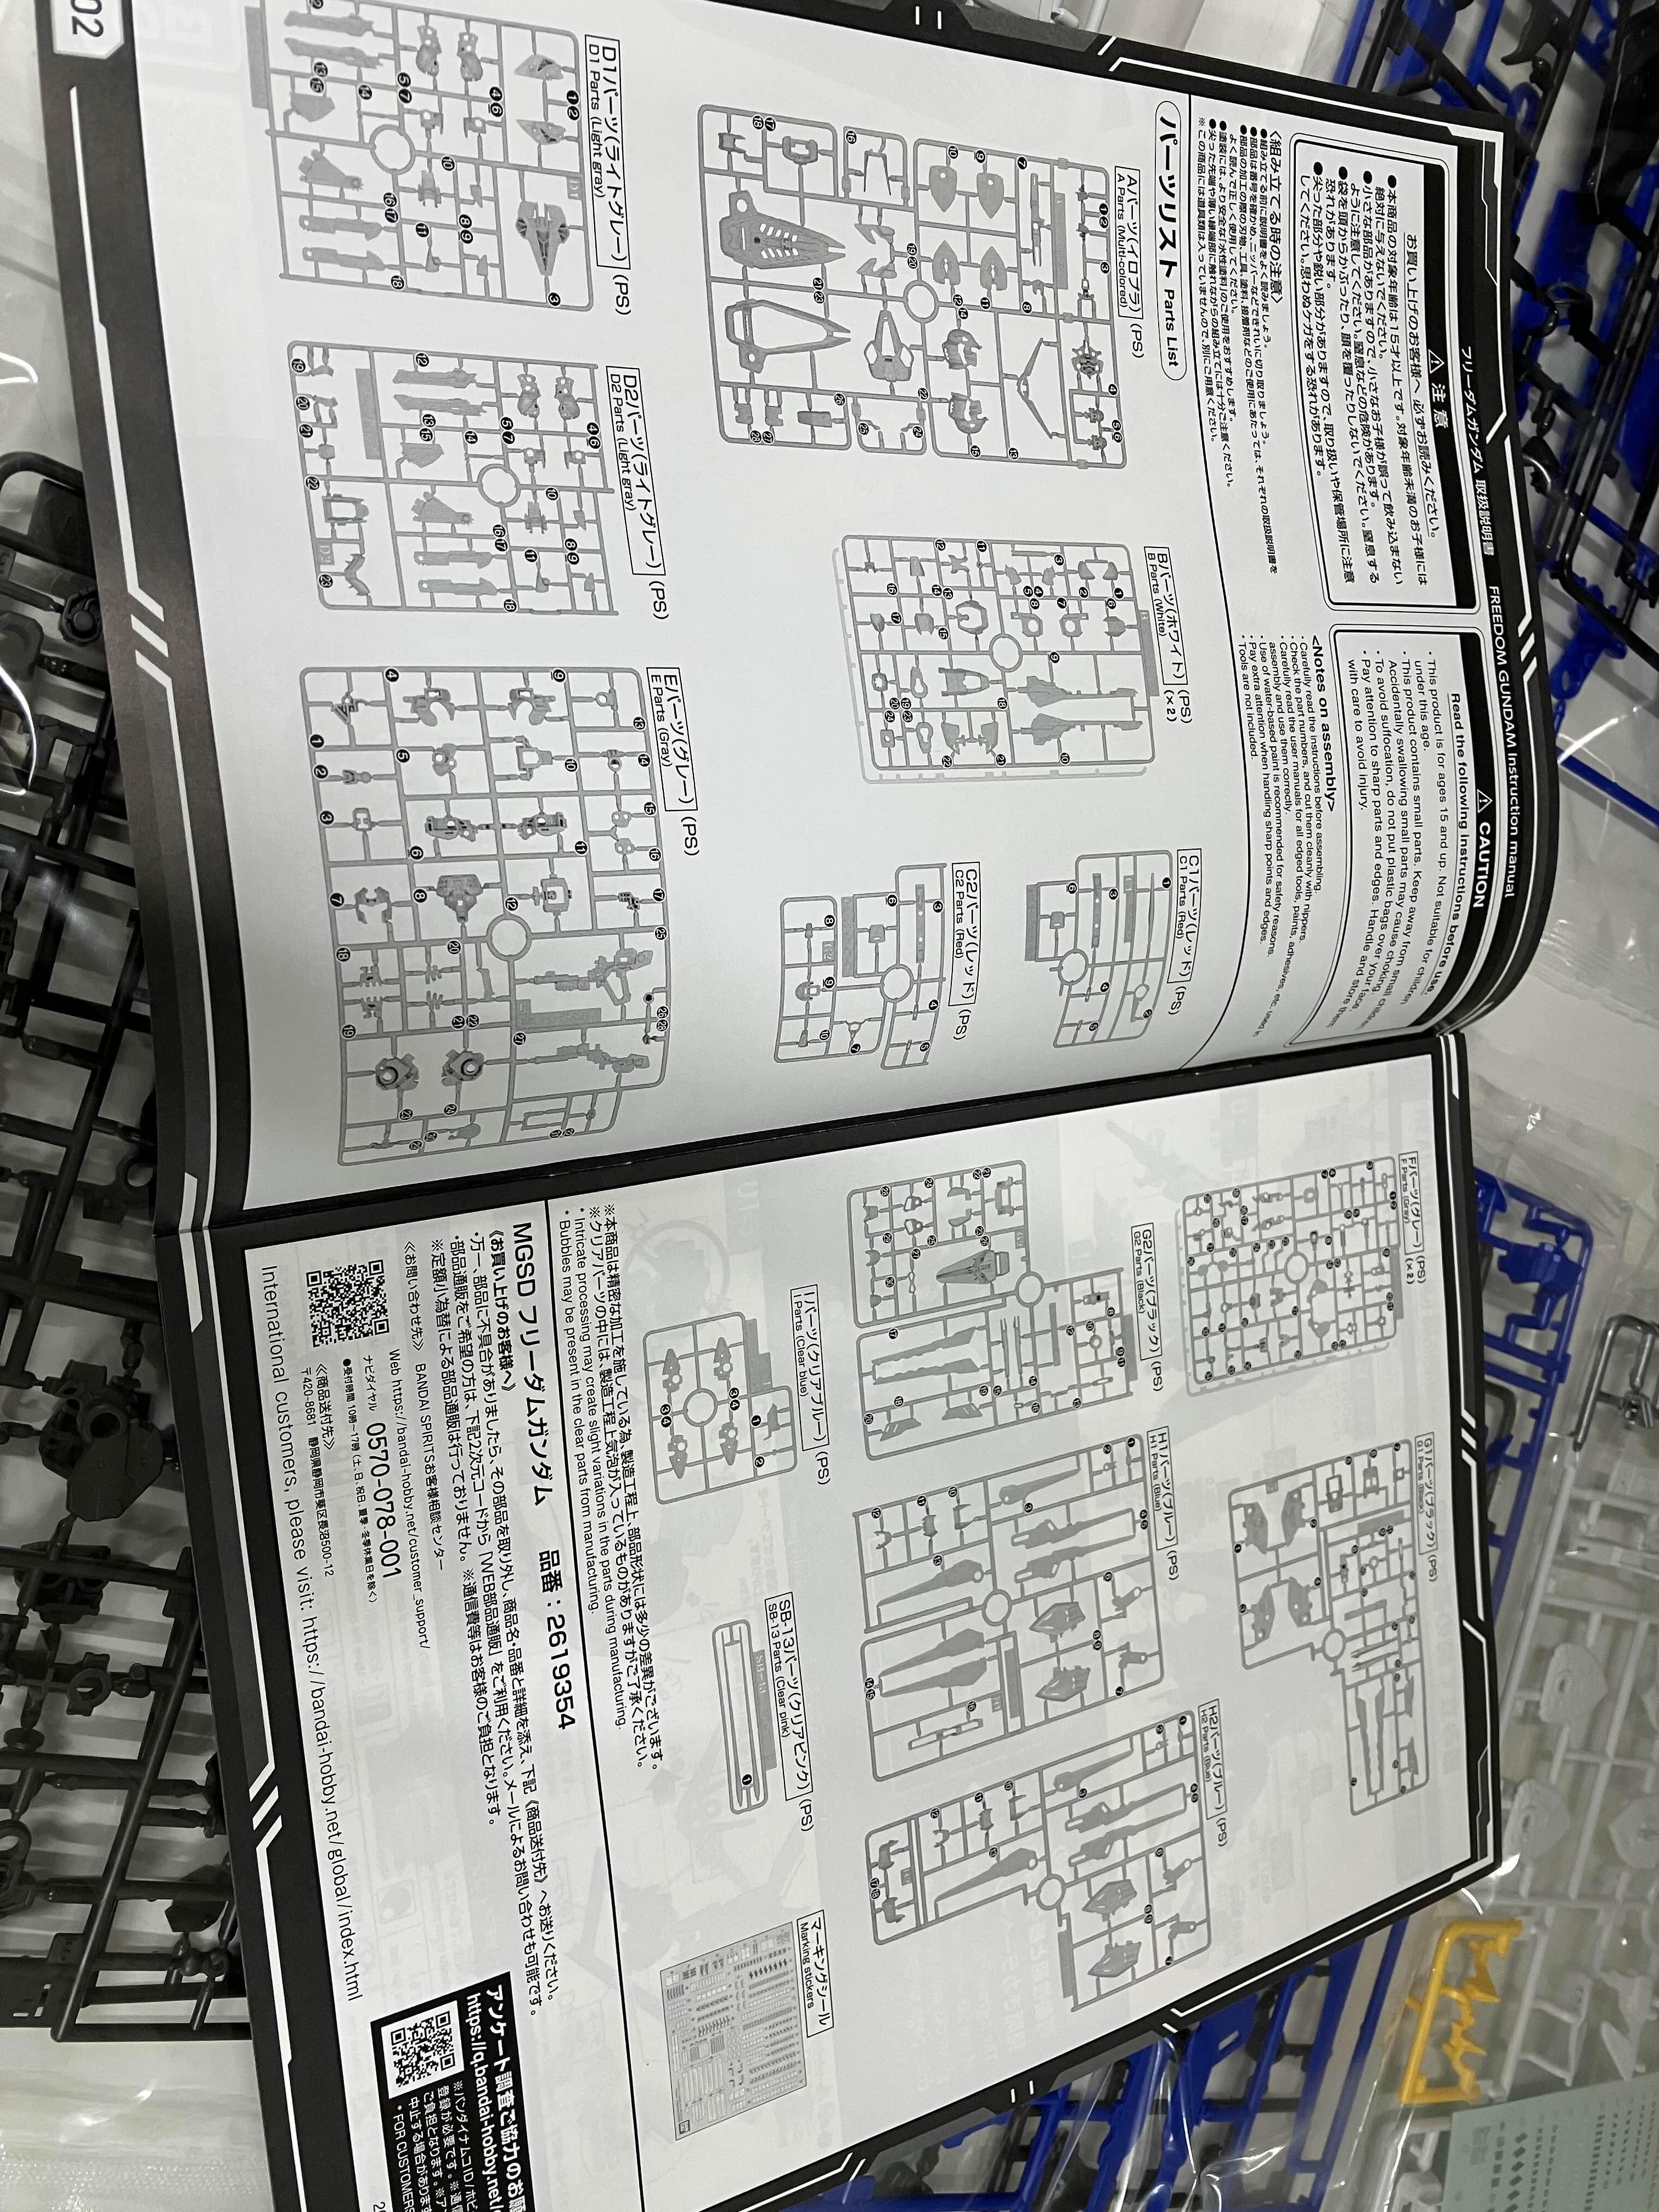 02
フリーダムガンダム 取扱説明書 FREEDOM GUNDAM Instruction manual
注意
お買い上げのお客様へ 必ずお読みください。
●本商品の対象年齢は15才以上です。対象年齢未満のお子様には
絶対に与えないでください。
●小さな部品がありますので、小さなお子様が誤って飲み込まない
ように注意してください。窒息などの危険があります。
●袋を頭からかぶったり、顔を覆ったりしないでください。窒息する
恐れがあります。
●尖った部分や鋭い部分がありますので、取り扱いや保管場所に注意
してください。思わぬケガをする恐れがあります。
CAUTION
Read the following instructions before use.
・This product is for ages 15 and up. Not suitable for children
under this age.
・This product contains small parts. Keep away from small children.
Accidentally swallowing small parts may cause choking.
・To avoid suffocation, do not put plastic bags over your face.
・Pay attention to sharp parts and edges. Handle and store them
with care to avoid injury.
〈組み立てる時の注意〉
●組み立てる前に説明書をよく読みましょう。
●部品は番号を確かめ、ニッパーなどできれいに切り取りましょう。
●部品の加工の際の刃物、工具、塗料、接着剤などのご使用にあたっては、それぞれの取扱説明書を
よく読んで正しく使用してください。
●塗装には、より安全な「水性塗料」のご使用をおすすめします。
●尖った先端や薄い縁端部に触れながらの組み立てには十分ご注意ください。
※この商品には道具類は入っていませんので、別にご用意ください。
<Notes on assembly>
・Carefully read the instructions before assembling.
・Check the part numbers, and cut them cleanly with nippers.
・Carefully read the user manuals for all edged tools, paints, adhesives, etc. used in
assembly and use them correctly.
・Use of water-based paint is recommended for safety reasons.
・Pay extra attention when handling sharp points and edges.
・Tools are not included.
パーツリスト Parts List
Aパーツ(イロプラ) (PS)
A Parts (Multi-colored)
Bパーツ(ホワイト) (PS)
B Parts (White) (×2)
C1パーツ(レッド) (PS)
C1 Parts (Red)
C2パーツ(レッド) (PS)
C2 Parts (Red)
D1パーツ(ライトグレー) (PS)
D1 Parts (Light gray)
D2パーツ(ライトグレー) (PS)
D2 Parts (Light gray)
Eパーツ(グレー) (PS)
E Parts (Gray)
Fパーツ(グレー) (PS)
F Parts (Gray) (×2)
G1パーツ(ブラック) (PS)
G1 Parts (Black)
G2パーツ(ブラック) (PS)
G2 Parts (Black)
H1パーツ(ブルー) (PS)
H1 Parts (Blue)
H2パーツ(ブルー) (PS)
H2 Parts (Blue)
Iパーツ(クリアブルー) (PS)
I Parts (Clear blue)
SB-13パーツ(クリアピンク) (PS)
SB-13 Parts (Clear pink)
SB-13
マーキングシール
Marking stickers
※本商品は精密な加工を施している為、製造工程上、部品形状には多少の差異がございます。
※クリアパーツの中には、製造工程上気泡が入っているものがありますがご了承ください。
* Intricate processing may create slight variations in the parts during manufacturing.
* Bubbles may be present in the clear parts from manufacturing.
MGSD フリーダムガンダム 品番：2619354
《お買い上げのお客様へ》
・万一、部品に不具合がありましたら、その部品を取り外し、商品名・品番と詳細を添え、下記《商品送付先》へお送りください。
・部品通販をご希望の方は、下記2次元コードから「WEB部品通販」をご利用ください。メールによるお問い合わせも可能です。
※定額小為替による部品通販は行っておりません。 ※通信費等はお客様のご負担となります。
《お問い合わせ先》 BANDAI SPIRITSお客様相談センター
Web https://bandai-hobby.net/customer_support/
ナビダイヤル 0570-078-001
●受付時間 10時～17時 (土、日、祝日、夏季・冬季休業日を除く)
《商品送付先》
〒420-8681 静岡県静岡市葵区長沼500-12
International customers, please visit: https://bandai-hobby.net/global/index.html
アンケート調査ご協力のお願
https://q.bandai-hobby.net/
※バンダイナムコID/ホビ
登録が必要です。※通信
ご負担となります。※ア
中止する場合があります
* FOR CUSTOMERS